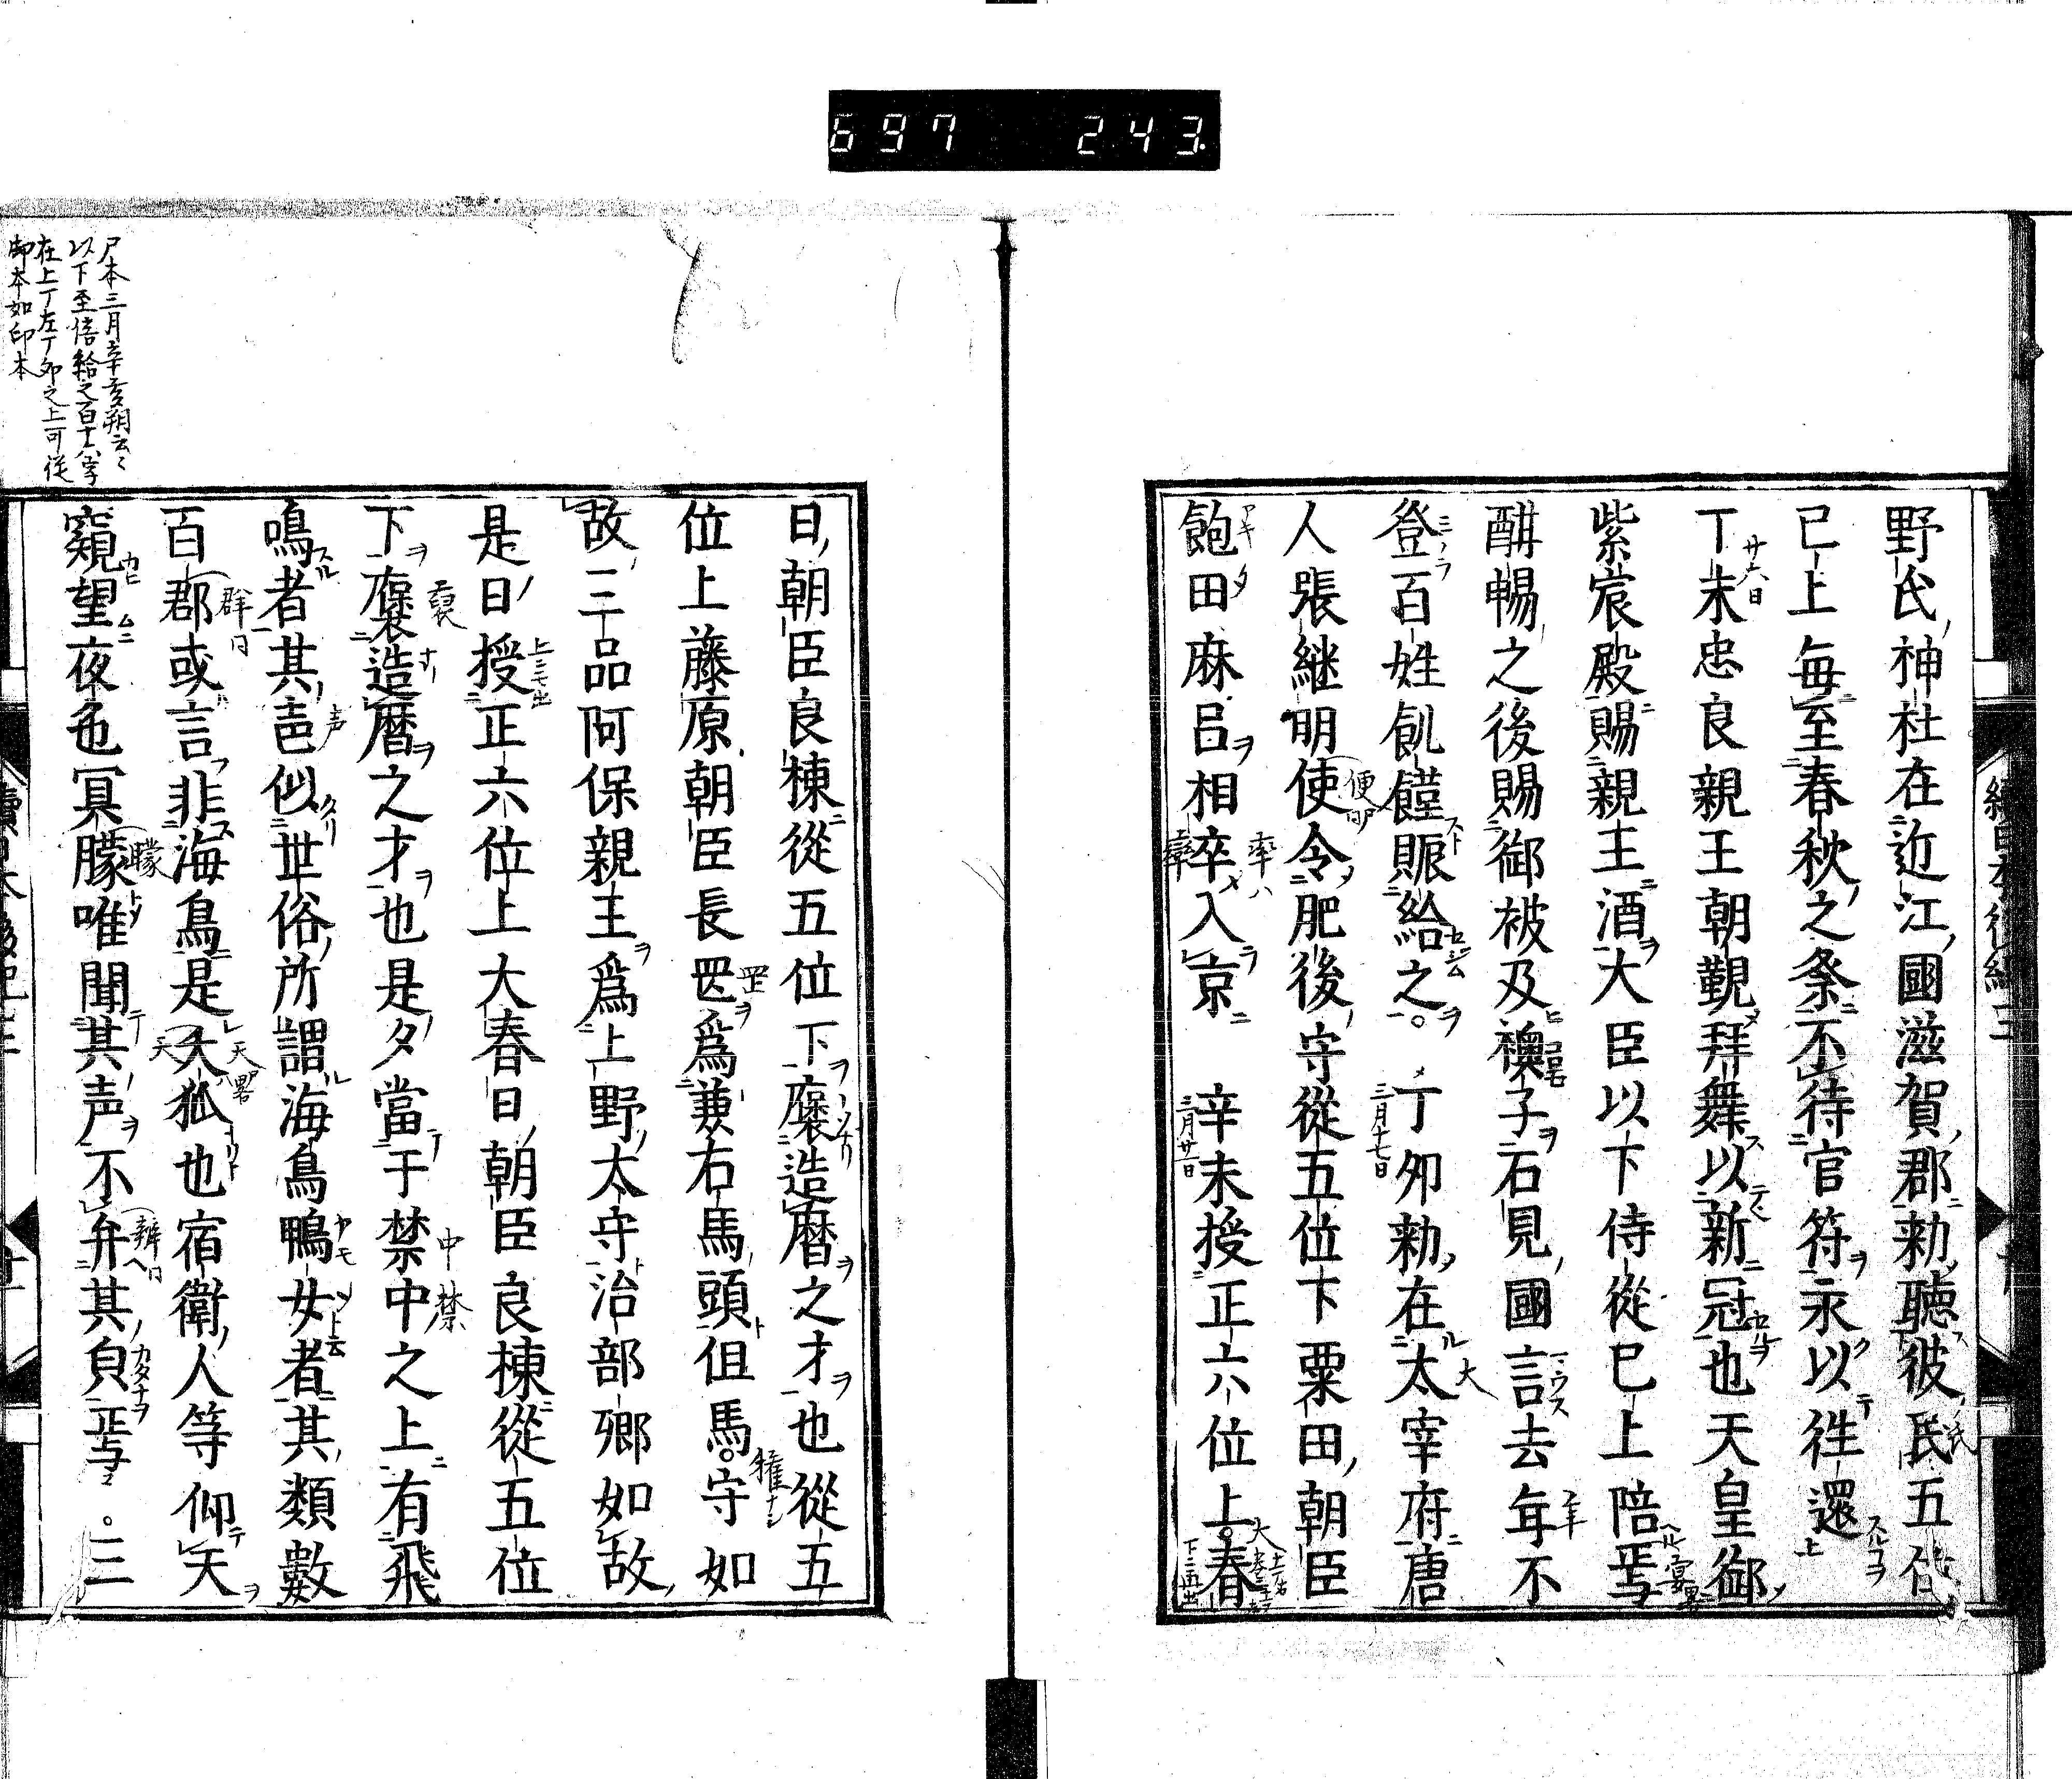 697 243.
野氏神社在近江國滋賀郡勅聴彼氏五位
已上毎至春秋之祭不待官符永以徃還
丁未忠良親王朝覲拜舞以新冠也天皇御
紫宸殿賜親王酒大臣以下侍從已上陪焉
酣暢之後賜御被及襖子石見國言去年不
登百姓飢饉賑給之。丁夘勅在太宰府唐
人張継明使令肥後守從五位下粟田朝臣
飽田麻呂相卒入京 辛未授正六位上。春
日朝臣良棟從五位下襃造暦之才也從五
位上藤原朝臣長罡爲兼右馬頭但馬。守如
故三品阿保親王爲上野太守治部郷如故
是日授正六位上大春日朝臣良棟從五位
下襃造暦之才也是夕當于禁中之上有飛
鳴者其声似世俗所謂海鳥鴨女者其類數
百郡或言非海鳥是大狐也宿衛人等仰天
窺望夜色冥朦唯聞其声不弁其皃焉。三
尸本三月辛亥朔云〻
以下至倍給之百十八字
在上丁左丁夘之上可從
御本如印本